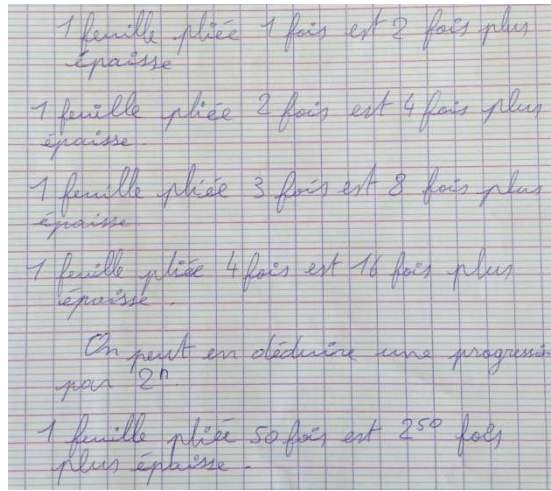 1 feuille pliée 1 fois est 2 fois plus
épaisse
1 feuille pliée 2 fois est 4 fois plus
épaisse.
1 feuille pliée 3 fois est 8 fois plus
épaisse
1 feuille pliée 4 fois est 16 fois plus
épaisse.
On peut en déduire une progression
par 2ⁿ.
1 feuille pliée 50 fois est 2⁵⁰ fois
plus épaisse.